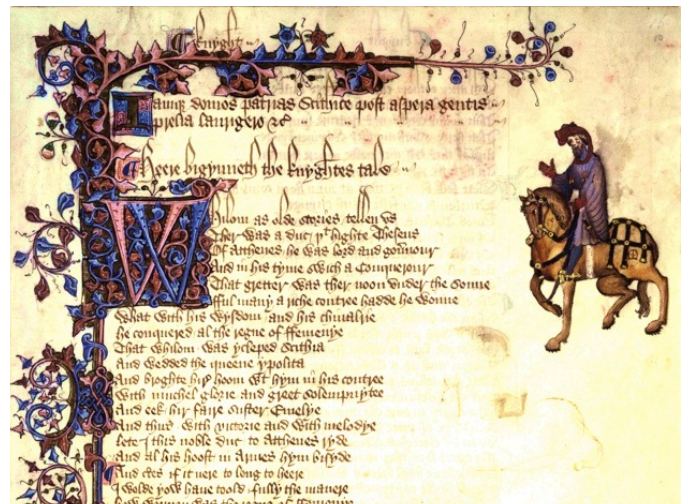 Knyght
Iamq; domos patrias Scithice post aspera gentis
prelia laurigero &c
Heere bigynneth the knyghtes tale
Whilom as olde stories tellen vs
Ther was a duc þt highte Theseus
Of atthenes he was lord and gouernour
And in his tyme swich a Conquerour
That gretter was ther noon vnder the sonne
fful many a riche contree hadde he wonne
What with his wysdom and his chiualrie
he conquered al the regne of ffemenye
That whilom was ycleped Scithia
And wedded the queene ypolita
And broghte hir hoom wt hym in his contree
With muchel glorie and greet solempnytee
And eek hir faire suster Emelye
And thus with victorie and with melodye
lete I this noble duc to Atthenes ryde
And al his hoost in Armes hym bisyde
And certes if it nere to long to heere
I wolde yow haue toold fully the manere
how wonnen was the regne of